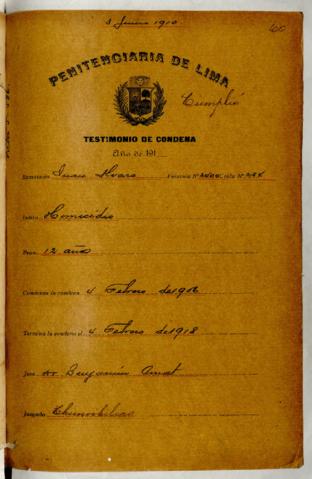 3 Junio 1910
400
PENITENCIARIA DE LIMA
Cumplió
TESTIMONIO DE CONDENA
Año de 191
Juan Alvaro
Delito Homicidio
Pena 12 años
Comienza la condena 4 Febrero de 1906
Termina la condena el 4 Febrero de 1918
Juez Dr. Benjamin Amat
Juzgado